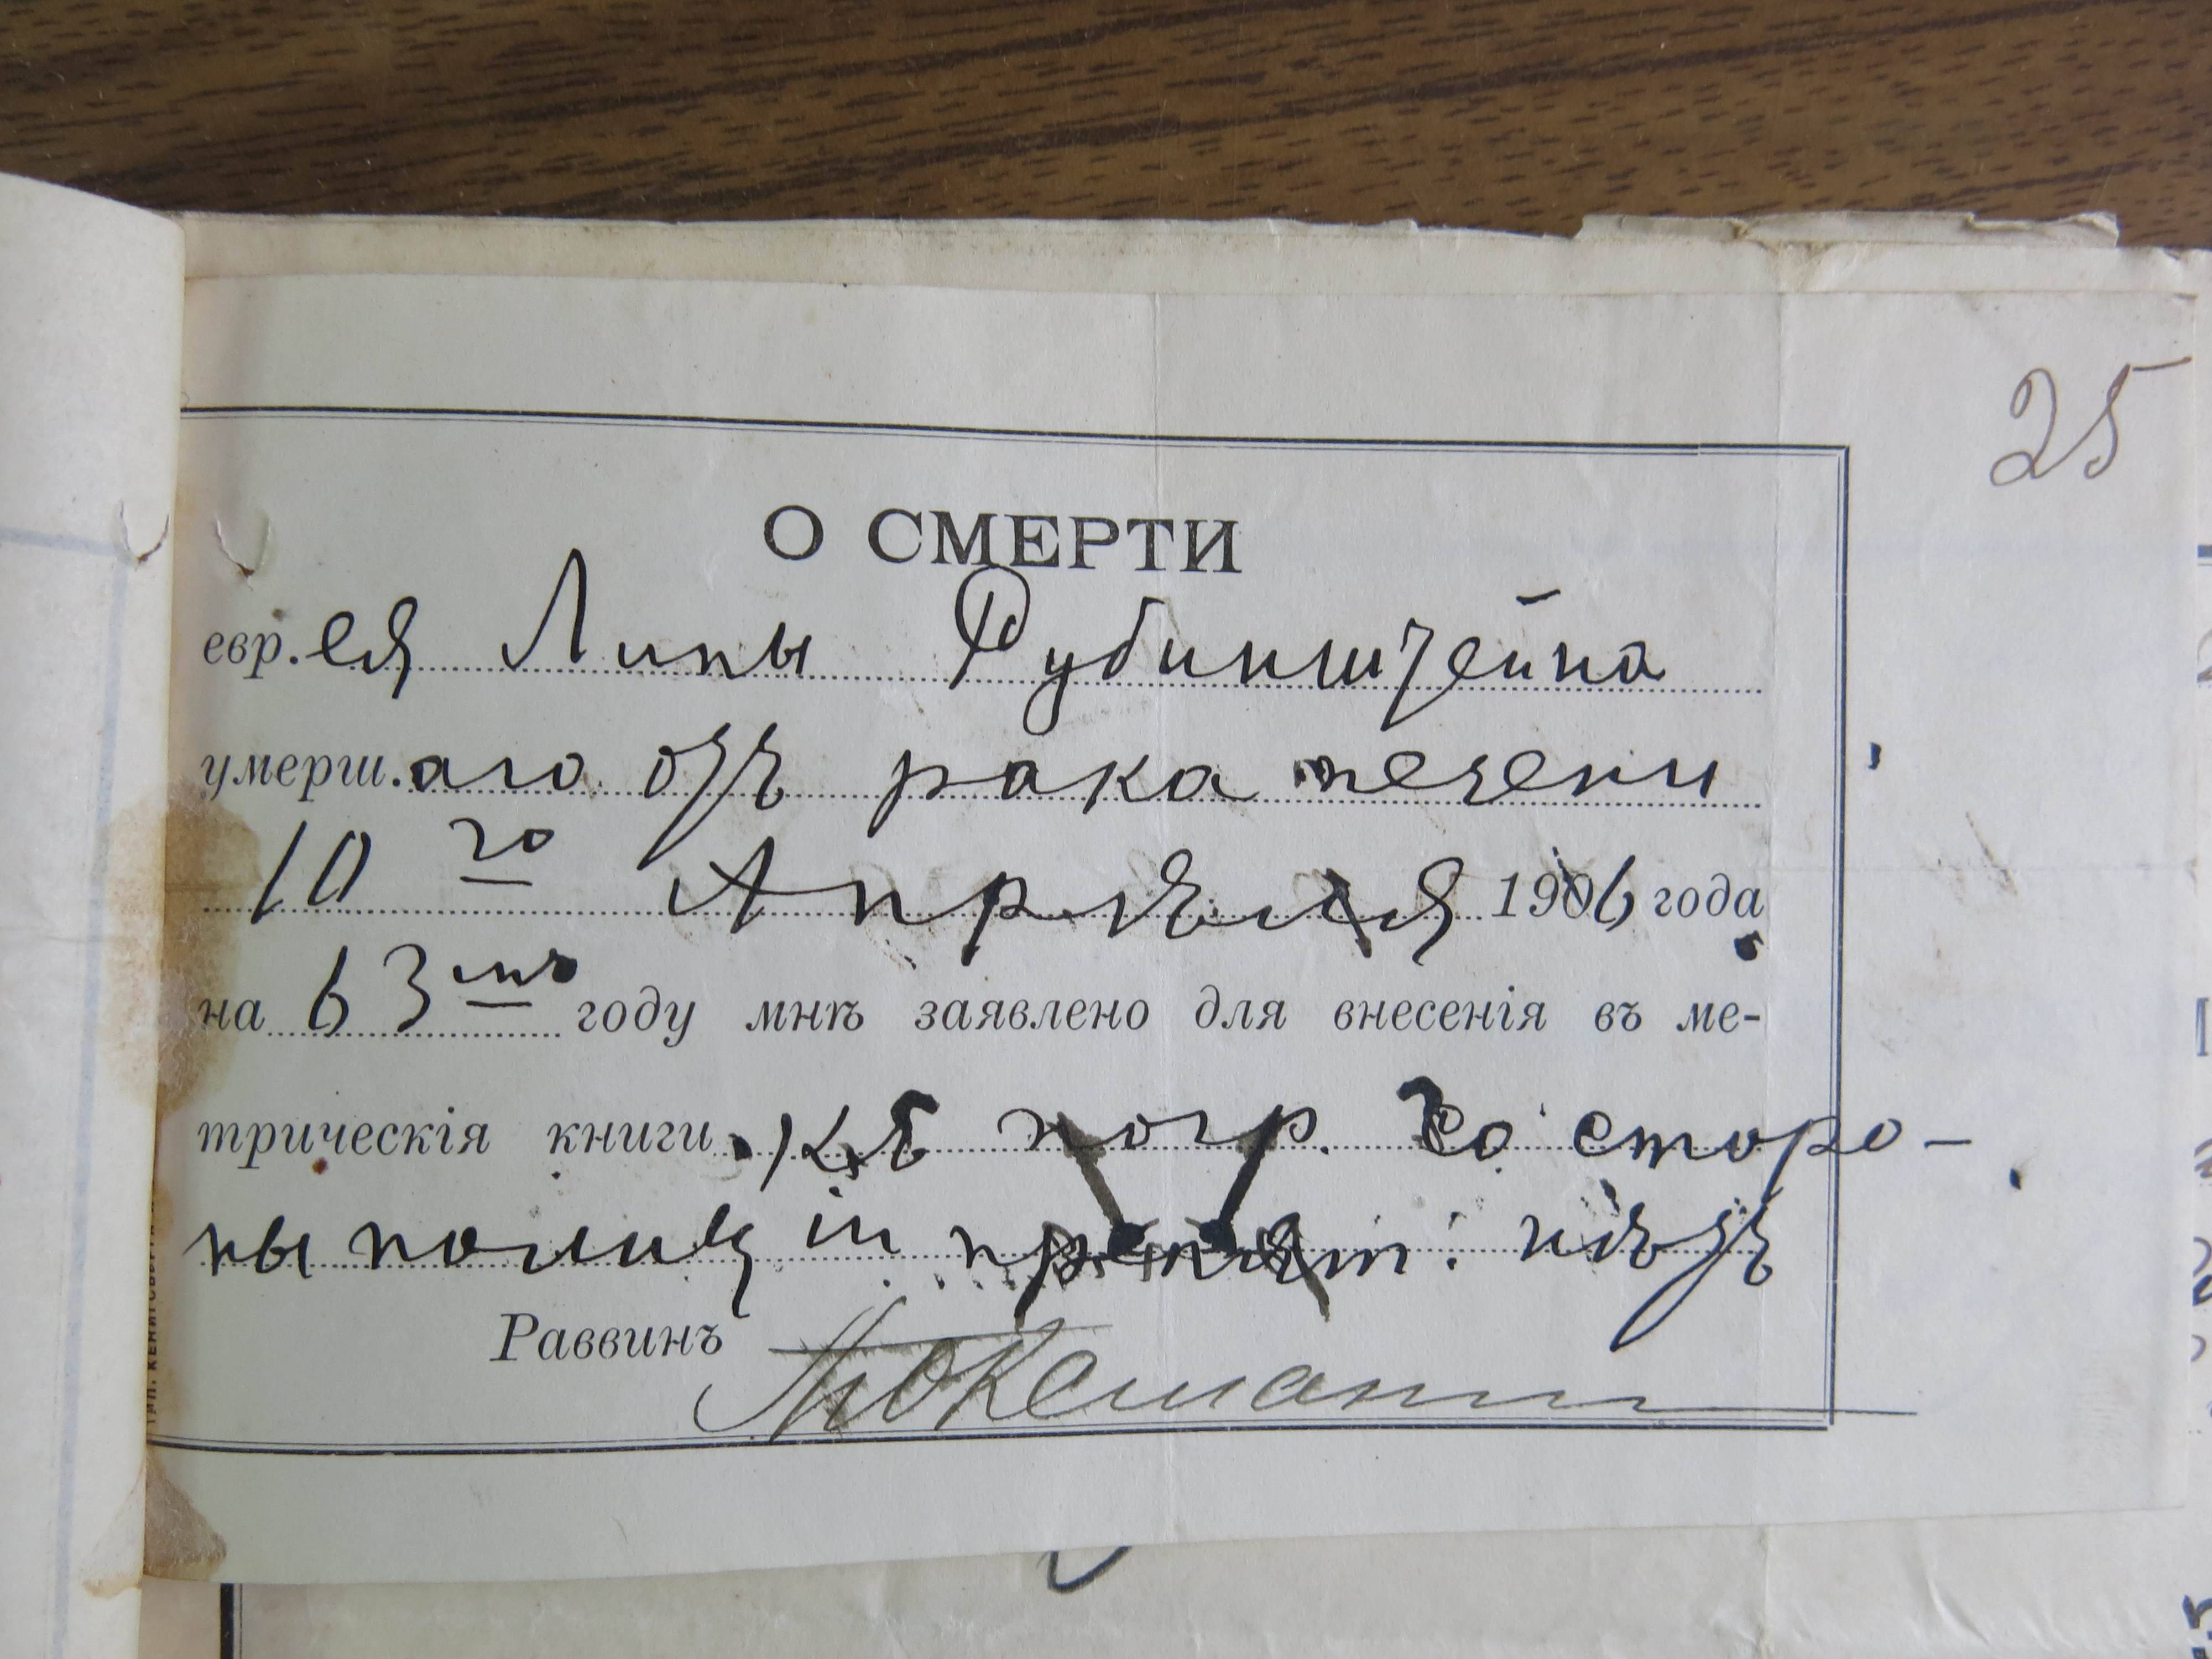 25
О СМЕРТИ
евр.ея Липы Рубинштейна
умерш.аго отъ рака печени
10го Апрѣля 1906 года
на 63мъ году мнѣ заявлено для внесенія въ ме-
трическія книги. Къ погр. со сторо-
ны полиціи препят: нѣтъ
Раввинъ